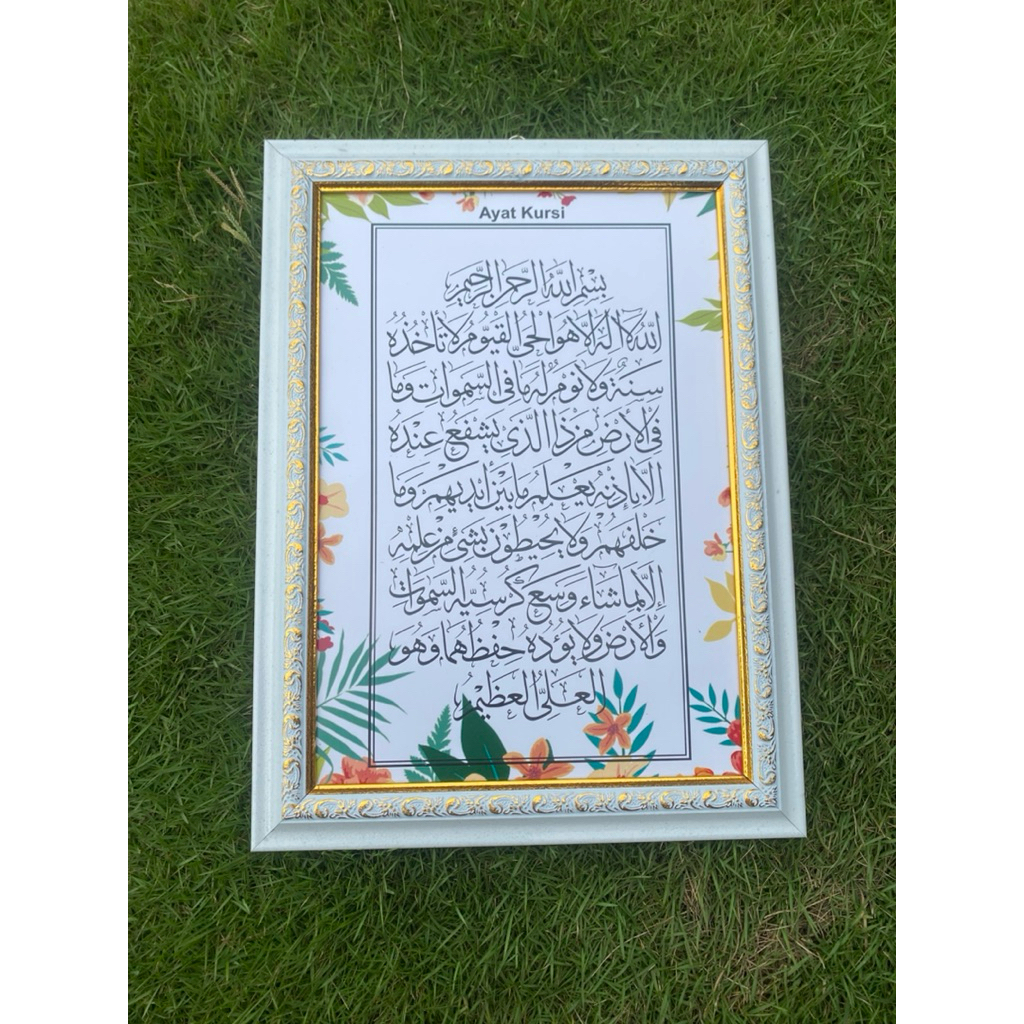 Ayat Kursi
بِسْمِ اللهِ الرَّحْمٰنِ الرَّحِيْمِ
اللهُ لَا إِلٰهَ إِلَّا هُوَ الْحَيُّ الْقَيُّومُ لَا تَأْخُذُهُ
سِنَةٌ وَلَا نَوْمٌ لَهُ مَا فِي السَّمٰوَاتِ وَمَا
فِي الْأَرْضِ مَنْ ذَا الَّذِي يَشْفَعُ عِنْدَهُ
إِلَّا بِإِذْنِهِ يَعْلَمُ مَا بَيْنَ أَيْدِيهِمْ وَمَا
خَلْفَهُمْ وَلَا يُحِيطُونَ بِشَيْءٍ مِنْ عِلْمِهِ
إِلَّا بِمَا شَاءَ وَسِعَ كُرْسِيُّهُ السَّمٰوَاتِ
وَالْأَرْضَ وَلَا يَؤُدُهُ حِفْظُهُمَا وَهُوَ
الْعَلِيُّ الْعَظِيْمُ